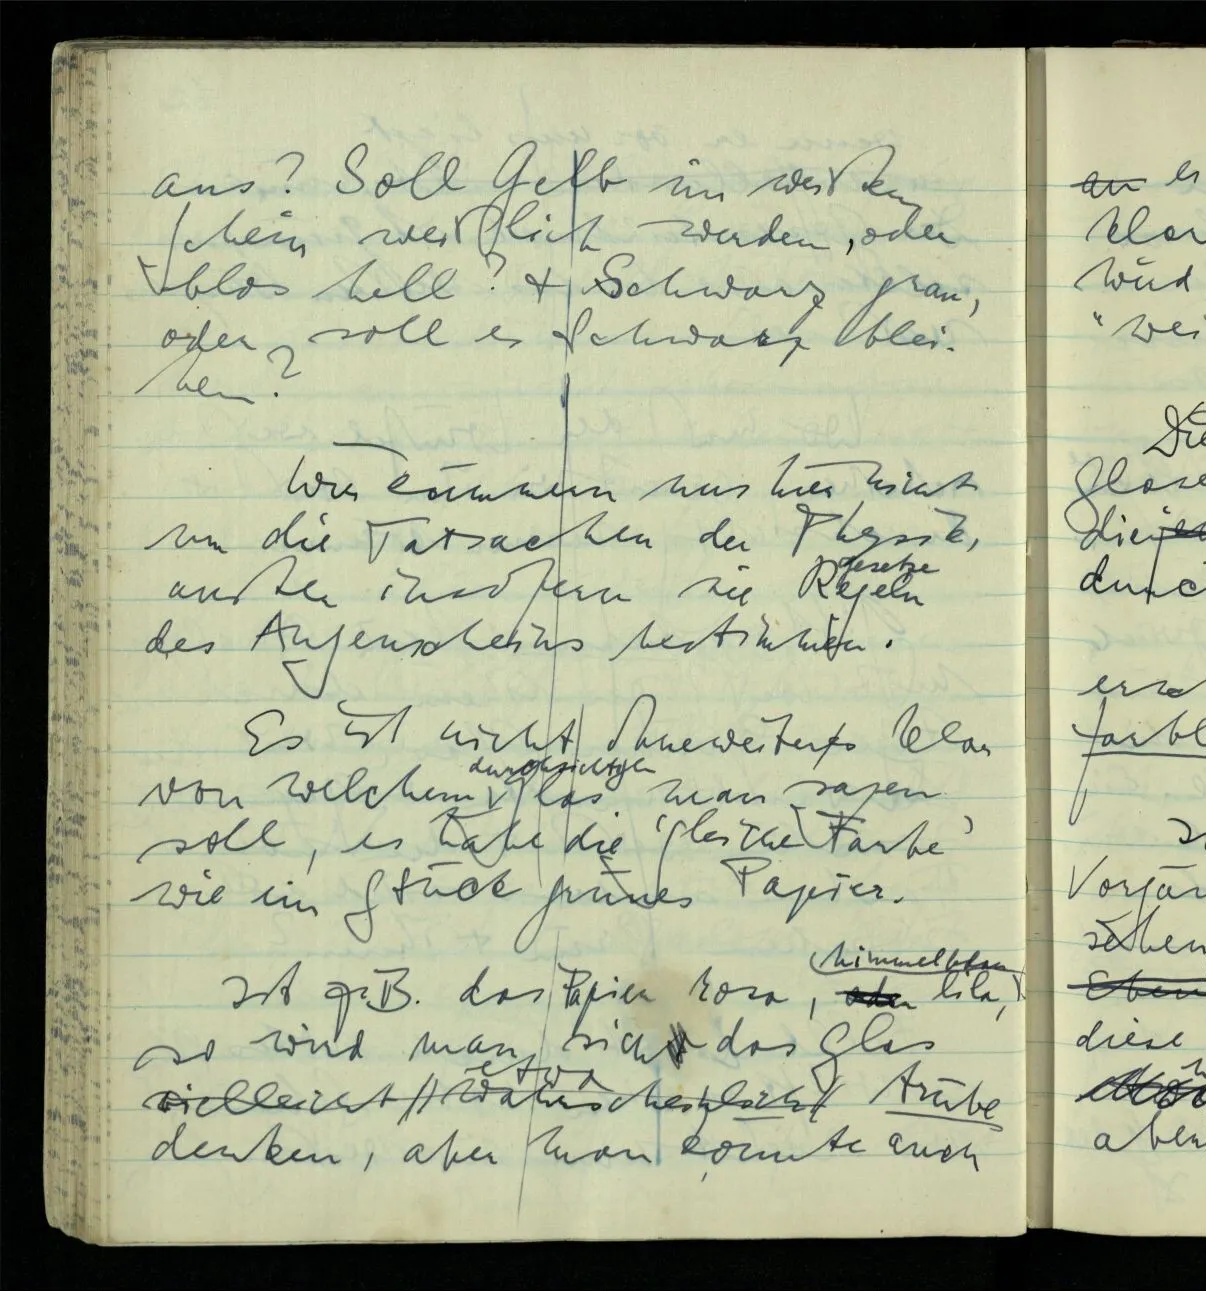 aus? Soll Gelb im weißen
Schein weißlich werden, oder
blos hell? + Schwarz grau,
oder soll es Schwarz blei-
ben?
Wir kümmern uns hier nicht
um die Tatsachen der Physik,
außer insofern sie Regeln
gesetze
des Augenscheins bestimmen.
Es ist nicht ohneweiters klar
durchsichtigen
von welchem Glas man sagen
soll, es habe die 'gleiche Farbe'
wie ein Stück grünes Papier.
himmelblau
Ist z.B. das Papier rosa, oder lila,
so wird man sich das Glas
etwa
vielleicht // wahrscheinlich // trübe
denken, aber man könnte auch
an es
klar
wird
"wei
Die
Glase
durch
farbl
Vorgän
sehen
Eben
diese
aber